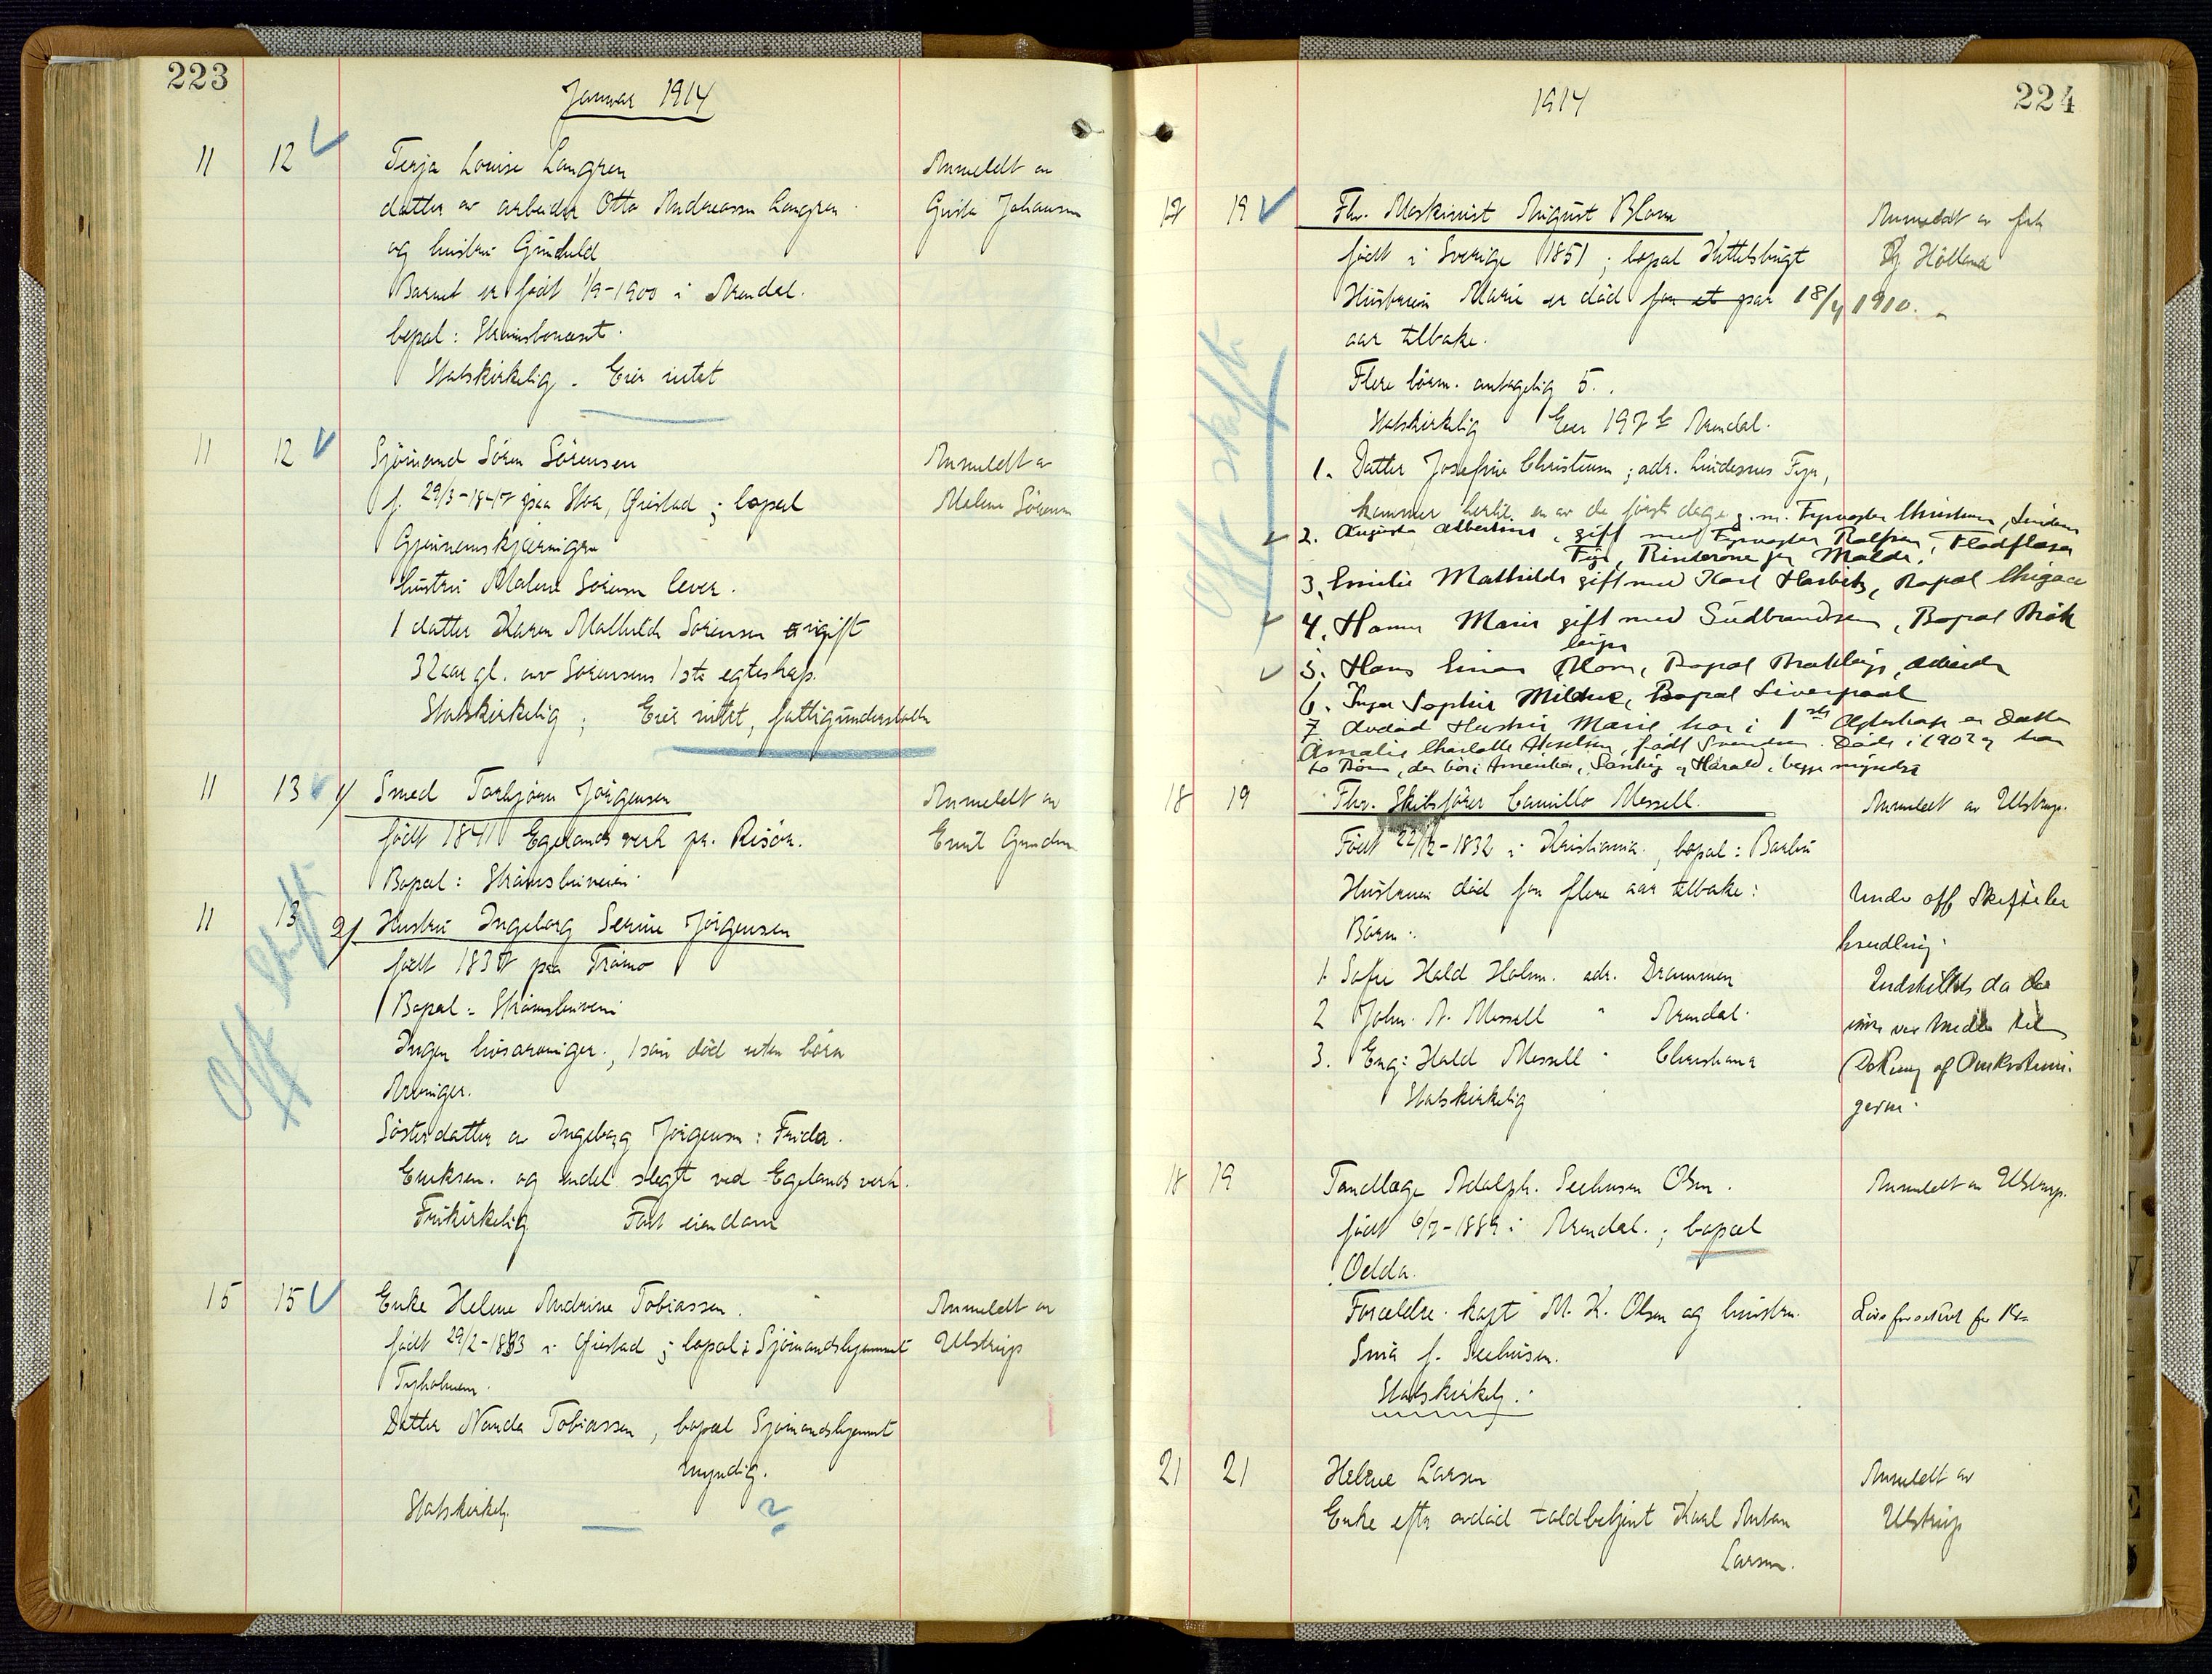 223
Januar 1914
11 12 Terja Louise Langren
datter av arbeider Otto Andreassen Langren
og hustru Gunhild
Barnet er født 1/9-1900 i Arendal.
bopal: Strømsbonæset.
Statskirkelig. Eier intet
Anmeldt av
Gusta Johansen
11 12 Sjømand Søren Sørensen
f. 29/3-1847 paa Stoa, Øiestad ; bopæl
Gjennemskjæringen
hustru Malene Sørensen lever.
1 datter Karen Mathilde Sørensen ugift
32 aar gl. av Sørensens 1ste egteskap.
Statskirkelig ; Eier intet, fattigunderstøttet
Anmeldt av
Malene Sørensen
11 13 1/ Smed Torbjørn Jørgensen
født 1841 Egelands verk pr. Risør.
Bopæl: Strømsbuveien
Anmeldt av
11 13 2/ Hustru Ingeborg Serine Jørgensen
født 1837 paa Tromø
Bopæl = Strømsbuveien
Ingen livsarvinger, 1 søn død uten børn
Arvinger.
Søsterdatter av Ingeborg Jørgensen: Frida
Eriksen. og endel slegt ved Egelands verk.
Frikirkelig Fast eiendom
Off skifte
15 15 Enke Helene Andrine Tobiassen.
født 29/2-1833 i Øiestad ; bopæl: Sjømandshjemmet
Tyholmen.
Datter Nanda Tobiassen, bopæl Sjømandshjemmet
myndig.
Statskirkelig. ?
Anmeldt av
Ulstrup
1914
224
17 19 Fhv. Maskinist August Blom
født i Sverige 1851 ; bopæl Kittelsbugt
Hustruen Marie er død for et par 18/4 1910.
aar tilbake.
Flere børn. antagelig 5.
Statskirkelig Eier 197 b Arendal.
Anmeldt av frk
Hølland
Off skifte
1. Datter Josefine Christensen ; adr. Lindesnes Fyr,
kommer hertil en av de første dage g. m. Fyrvogter Christensen,
2. Augusta Albertine, gift med Fyrvogter Rolfsen, Fladflesa
Fyr, Rinderøne pr Molde.
3. Emilie Mathilde gift med Karl, Bopæl Chigaco
4. Hanna Marie gift med Gudbrandsen, Bopæl Bræk
leipe
5. Hans Einar Blom, Bopæl Brækleipe, arbeider
6. Inga Sophie Milthue, Bopæl Liverpool
7. Avdød Hustru Marie har i 1ste Ægteskap en Datter
Amalie Charlotte, født Svendsen. Døde i 1902 og har
to Børn, der bor i Amerika, og Harald, begge myndige
18 19 Fhv. Skibsfører Camillo Messell
Født 22/12-1832 i Kristiania, bopæl: Barbu
Hustruen død for flere aar tilbake:
Børn:
1. Sofie Hald Holm. adr. Drammen
2 John. A. Messell " Arendal.
3. Eng: Hald Messell " Christiania
Statskirkelig
Anmeldt av Ulstrup.
Under off Skiftebe
handling.
Indstilles da der
ikke var Midler til
Dekning af Omkostnin-
gerne.
18 19 Tandlæge Adolph. Seehusen Olsen.
født 6/7-1889 i Arendal. ; bopæl
Odda.
Forældre. kapt M. K. Olsen og hustru
f. Seehusen.
Statskirkelig.
Anmeldt av Ulstrup.
Livsforsikret for Kr.
21 21 Helene Larsen
Enke efter avdød toldbetjent Karl Anton
Larsen.
Anmeldt av
Ulstrup